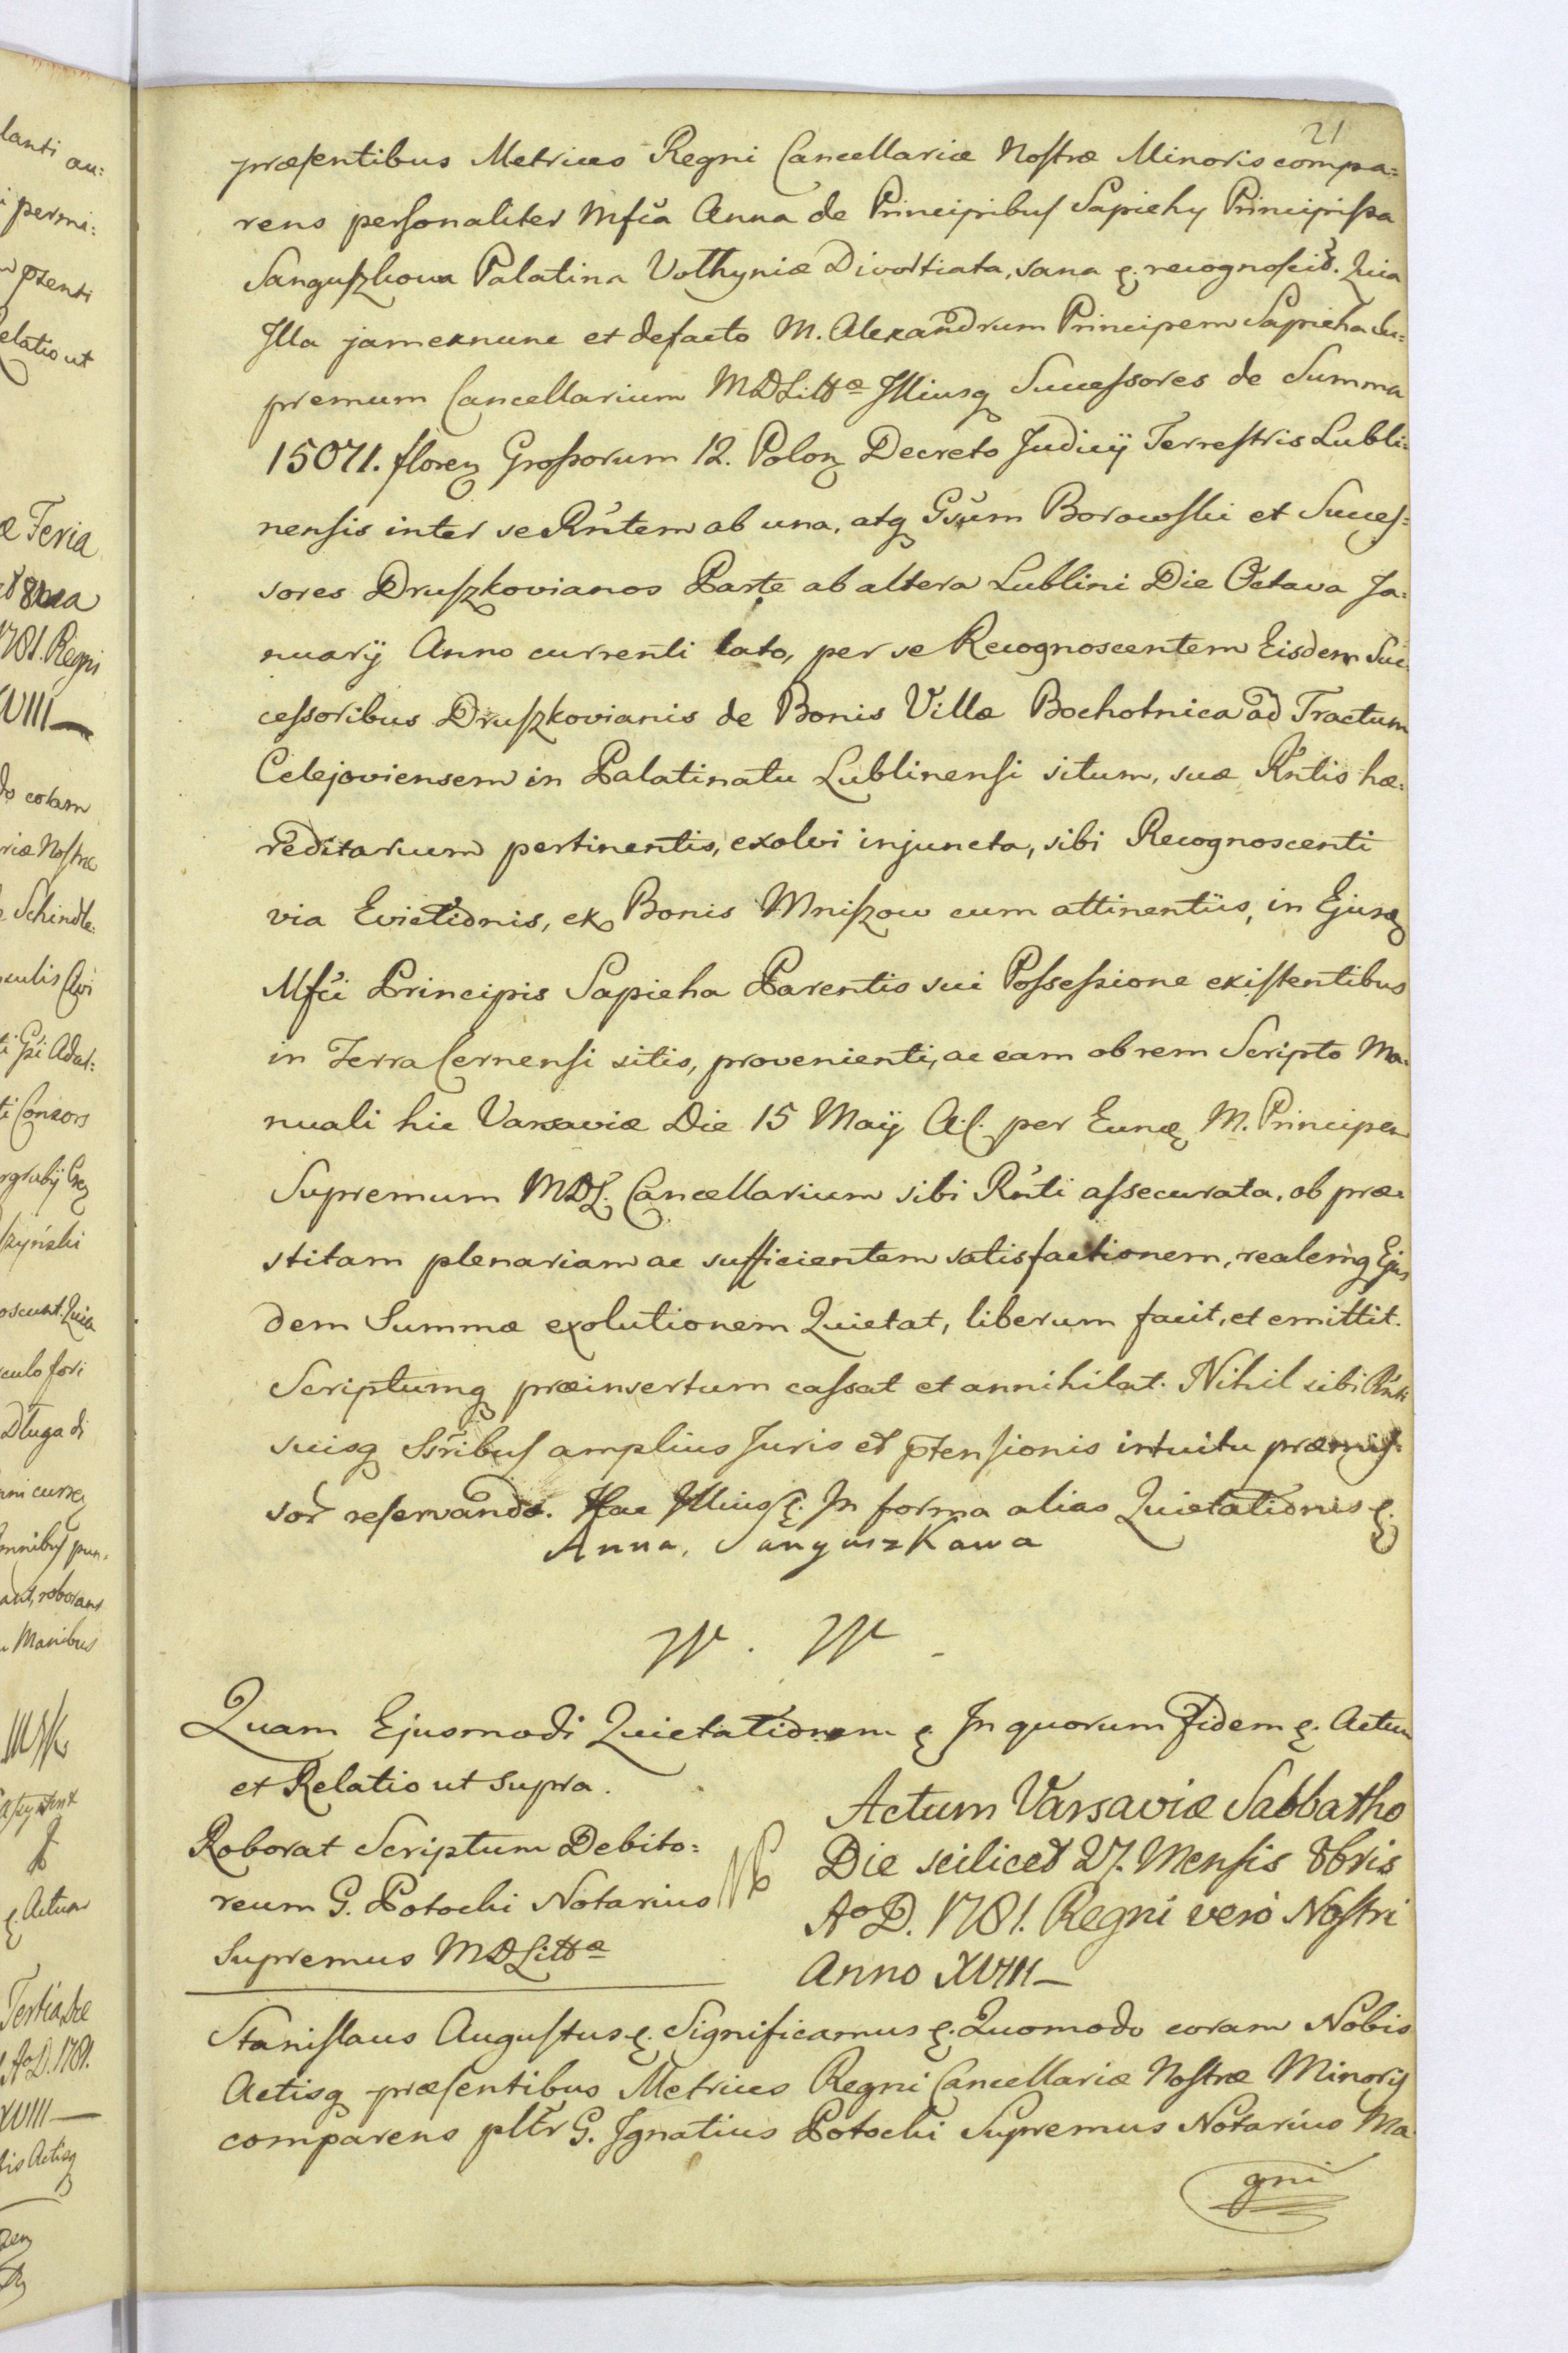 21
præsentibus Metrices Regni Cancellariæ Nostræ Minoris compa=
rens personaliter Mfca Anna de Principibus Sapiehy Principissa
Sanguszkowa Palatina Volhyniæ Divortiata, sana &. recognoscit. Quia
Illa jamexnunc et defacto M. Alexandrum Principem Sapieha Su=
premum Cancellarium MDLittæ Illiusq Successores de Summa
15071. floren Grossorum 12. Polon Decreto Judicij Terrestris Lubli=
nensis inter se Rntem ab una, atq Gsum Borowski et Succes=
sores Druszkovianos Parte ab altera Lublini Die Octava Ja=
nuarij Anno currenti lato, per se Recognoscentem Eisdem Suc
cessoribus Druszkovianis de Bonis Villa Bochotnica ad Tractum
Celejoviensem in Palatinatu Lublinensi situm, suæ Rntis hæ=
reditarium pertinentis, exolvi injuncta, sibi Recognoscenti
via Evictionis, ex Bonis Mniszow cum attinentiis, in Ejusq
Mfci Principis Sapieha Parentis sui Possessione existentibus
in Terra Cernensi sitis, provenienti, ac eam ob rem Scripto Ma=
nuali hic Varsaviæ Die 15 Maij A.C. per Eunq M. Principem
Supremum MDL. Cancellarium sibi Rnti assecurata, ob præ=
stitam plenariam ac sufficientem satisfactionem, realemq Ejus
dem Summæ exolutionem Quietat, liberum facit, et emittit.
Scriptumq præinsertum cassat et annihilat. Nihil sibi Rnti
suisq Ssribus amplius Juris et ptensionis intuitu præmis=
sor reservando. Hac Illius &. In forma alias Quietationis &.
Anna, SanguszKawa
W. W.
Quam Ejusmodi Quietationem & In quorum Fidem &. Actum
et Relatio ut supra.
Actum Varsaviæ Sabbatho
Die scilicet 27. Mensis 8bris
Ao D. 1781. Regni vero Nostri
Anno XVIII—
Roborat Scriptum Debito=
reum G. Potocki Notarius
Supremus MDLittæ
Stanislaus Augustus &. Significamus &. Quomodo coram Nobis
Actisq præsentibus Metrices Regni Cancellariæ Nostræ Minoris
comparens pltr G. Ignatius Potocki Supremus Notarius Ma
gni